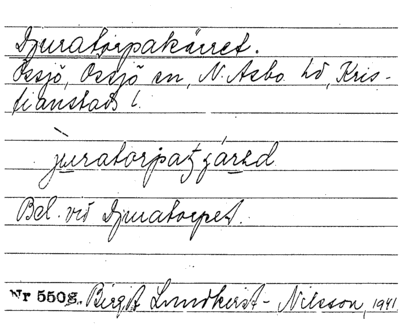 Djuratorpakärret.
Össjö, Össjö sn, N. Åsbo hd, Kris-
tianstads l.
Bel. vid Djuratorpet.
Nr 5508. Birgit Lundkvist-Nilsson, 1941